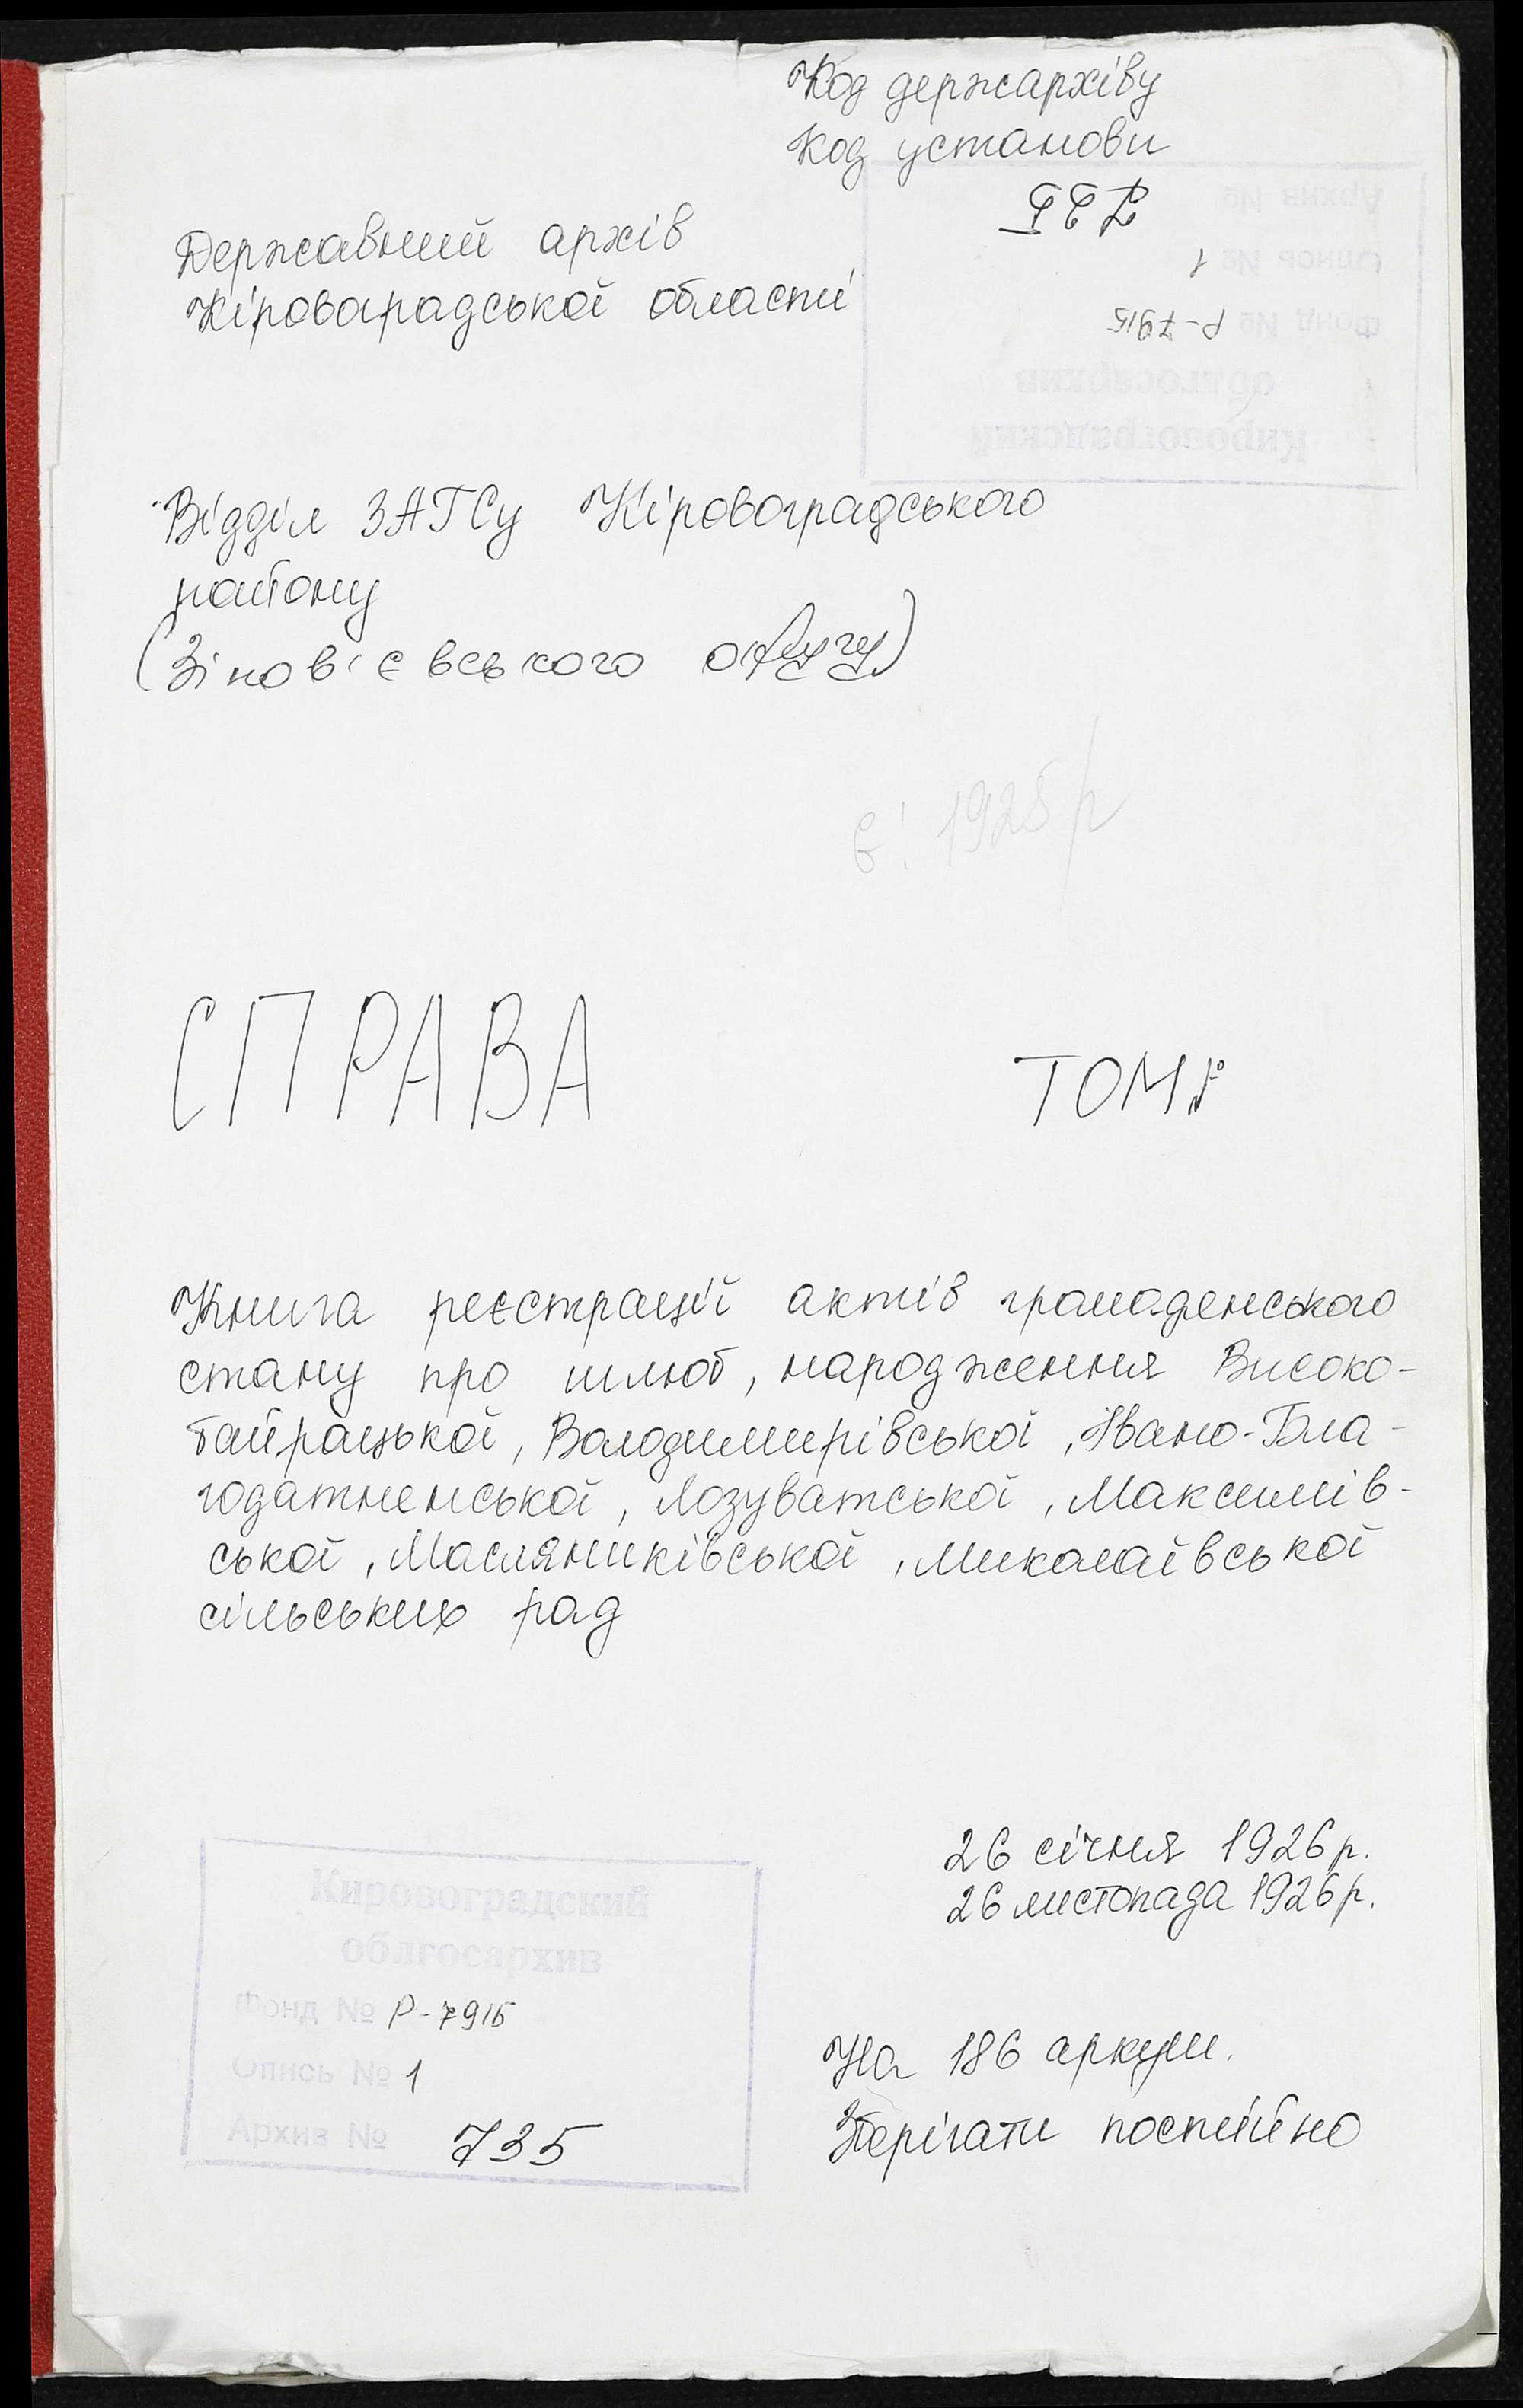 Код держархіву
Код установи
Архив № 735
Опись № 1
Фонд № Р-7915
облгосархив
Кировоградский
Державний архів
Кіровоградської області
Відділ ЗАГСу Кіровоградського
району
(Зінов'євського округу)
є! 1925 р
СПРАВА ТОМ №
Книга реєстрації актів громаденського
стану про шлюб, народження Високо-
байрацької, Володимирівської, Івано-Бла-
годатненської, Лозуватської, Максимів-
ської, Масляниківської, Миколаївської
сільських рад
26 січня 1926 р.
26 листопада 1926 р.
Кировоградский
облгосархив
Фонд № Р-7915
Опись № 1
Архив № 735
На 186 аркуш.
Зберігати постійно